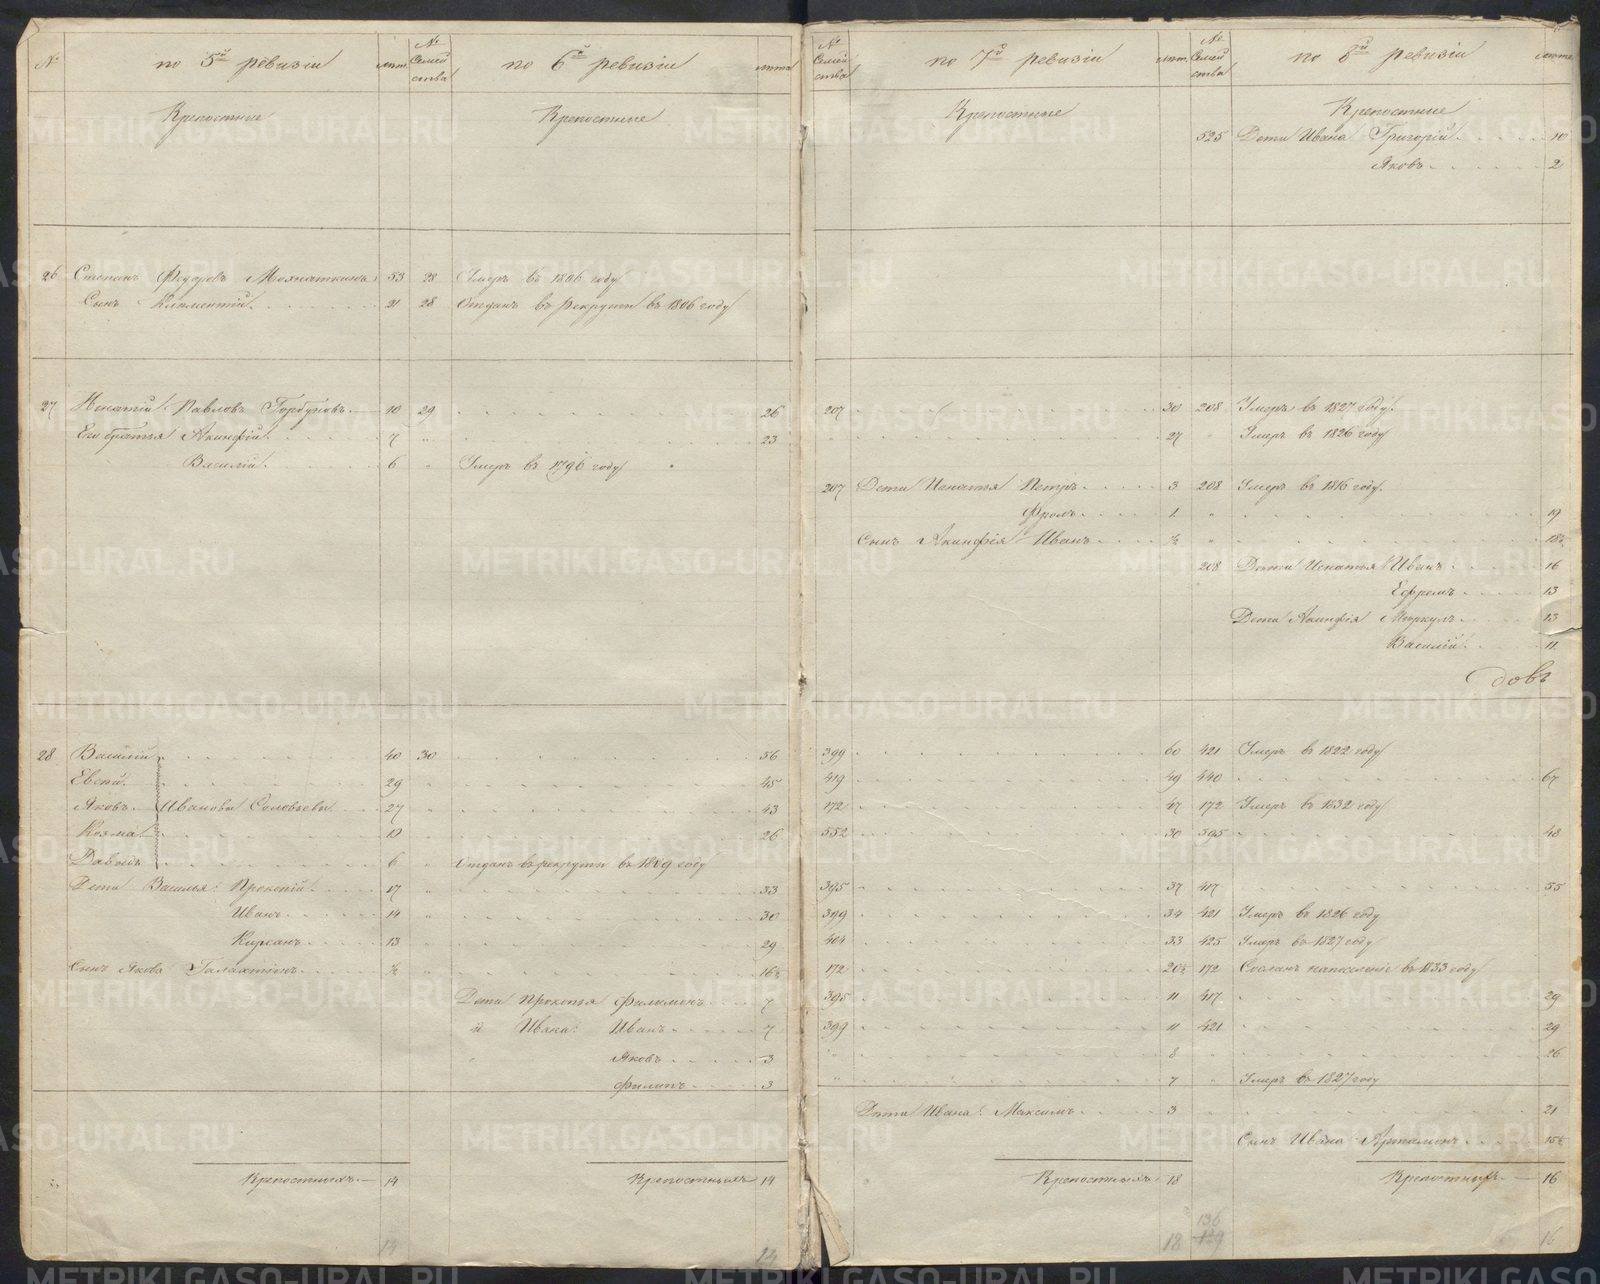 № по 5й ревизіи лѣт. № Семей ства по 6й ревизіи лѣта
Крепостные Крепостные
26 Степанъ Федоровъ Мохнаткинъ 53 28 Умеръ въ 1806 году
Сынъ Климентій 21 28 Отданъ въ рекруты въ 1806 году
27 Игнатій Павловъ Горбуновъ 10 29 26
Его братья Акинфій 7 " 23
Василій 6 " Умеръ въ 1796 году
28 Василій 40 30 56
Евсей 29 " 45
Яковъ Ивановы Соловьевы 27 " 43
Козма 10 " 26
Давыдъ 6 " Отданъ въ рекруты въ 1809 году
Дети Василья: Прокопій 17 " 33
Иванъ 14 " 30
Кирсанъ 13 " 29
Сынъ Якова Галактіонъ ½ " 16½
Дети Прокопья Филимонъ 7
и Ивана: Иванъ 7
Яковъ 3
Филипъ 3
Крепостныхъ 14 Крепостныхъ 14
14 14
№ Семей ства по 7й ревизіи лѣт. № Семей ства по 8й ревизіи лѣта
Крепостные Крепостные
525 Дети Ивана Григорій 10
Яковъ 2
207 30 208 Умеръ въ 1827 году.
27 " Умеръ въ 1826 году
207 Дети Игнатья Петръ 3 208 Умеръ въ 1816 году.
Фролъ 1 " 19
Сынъ Акинфія Иванъ ½ " 18½
208 Дети Игнатья Иванъ 16
Ефремъ 13
Дети Акинфія Меркулъ 13
Василій 11
399 60 421 Умеръ въ 1822 году
419 49 440 67
172 47 172 Умеръ въ 1832 году
552 30 595 48
395 37 417 55
399 34 421 Умеръ въ 1826 году
404 33 425 Умеръ въ 1827 году
172 20½ 172 Сосланъ на поселеніе въ 1833 году
395 11 417 29
399 11 421 29
" 8 " 26
" 7 " Умеръ въ 1827 году
Дети Ивана: Максимъ 3 " 21
Сынъ Ивана Артамонъ 15½
Крепостныхъ 18 Крепостныхъ 16
136
18 129 16
METRIKI.GASO-URAL.RU